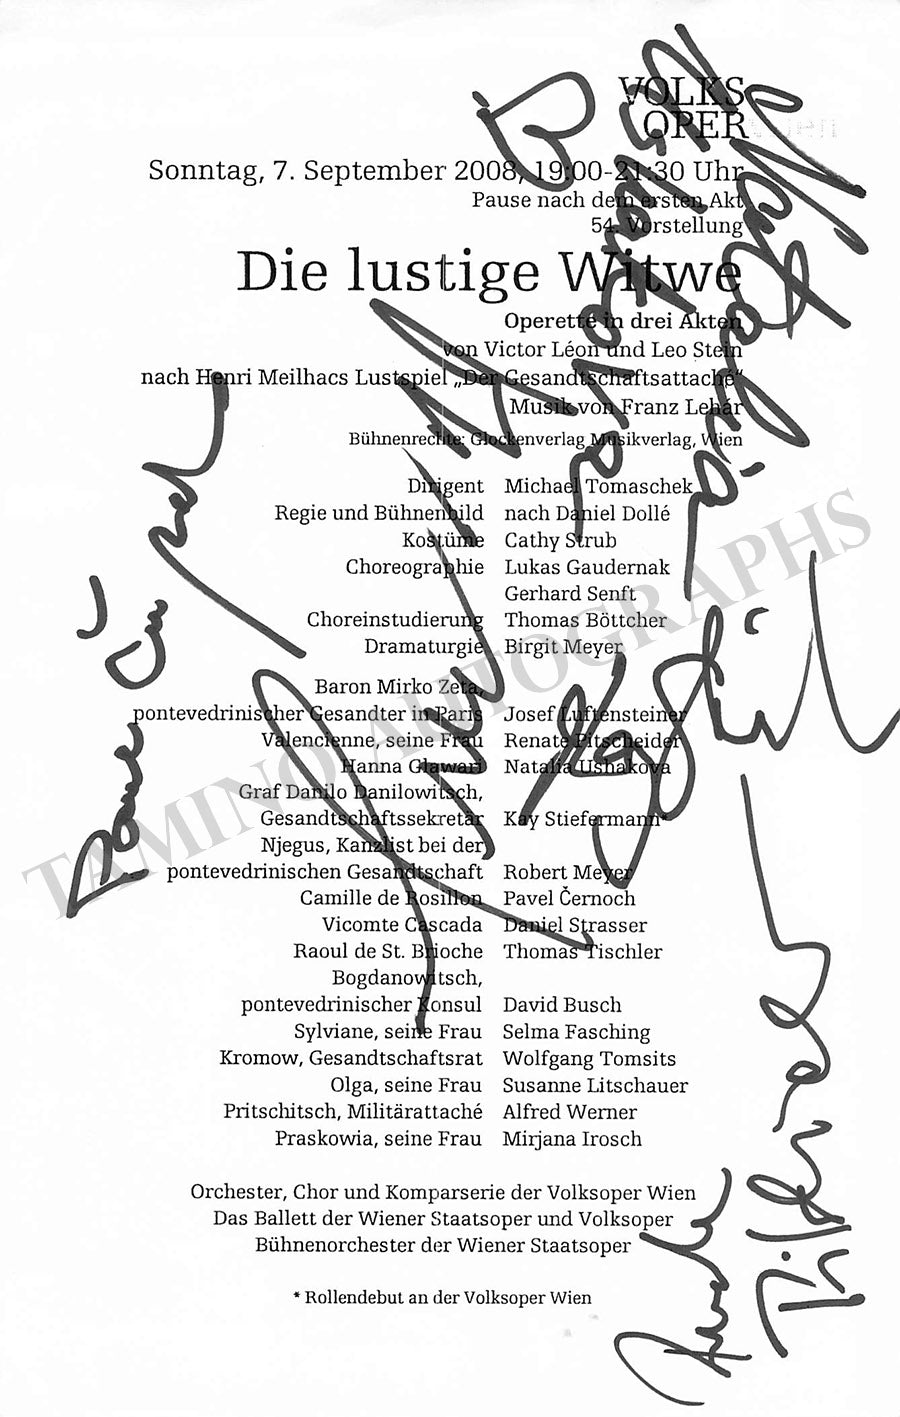 VOLKS
OPER
Sonntag, 7. September 2008, 19:00-21:30 Uhr
Pause nach dem ersten Akt
54. Vorstellung
Die lustige Witwe
Operette in drei Akten
von Victor Léon und Leo Stein
nach Henri Meilhacs Lustspiel „Der Gesandtschaftsattaché“
Musik von Franz Lehár
Bühnenrechte: Glockenverlag Musikverlag, Wien
Dirigent Michael Tomaschek
Regie und Bühnenbild nach Daniel Dollé
Kostüme Cathy Strub
Choreographie Lukas Gaudernak
Gerhard Senft
Choreinstudierung Thomas Böttcher
Dramaturgie Birgit Meyer
Baron Mirko Zeta,
pontevedrinischer Gesandter in Paris Josef Luftensteiner
Valencienne, seine Frau Renate Pitscheider
Hanna Glawari Natalia Ushakova
Graf Danilo Danilowitsch,
Gesandtschaftssekretär Kay Stiefermann*
Njegus, Kanzlist bei der
pontevedrinischen Gesandtschaft Robert Meyer
Camille de Rosillon Pavel Černoch
Vicomte Cascada Daniel Strasser
Raoul de St. Brioche Thomas Tischler
Bogdanowitsch,
pontevedrinischer Konsul David Busch
Sylviane, seine Frau Selma Fasching
Kromow, Gesandtschaftsrat Wolfgang Tomsits
Olga, seine Frau Susanne Litschauer
Pritschitsch, Militärattaché Alfred Werner
Praskowia, seine Frau Mirjana Irosch
Orchester, Chor und Komparserie der Volksoper Wien
Das Ballett der Wiener Staatsoper und Volksoper
Bühnenorchester der Wiener Staatsoper
* Rollendebut an der Volksoper Wien
TAMINO AUTOGRAPHS